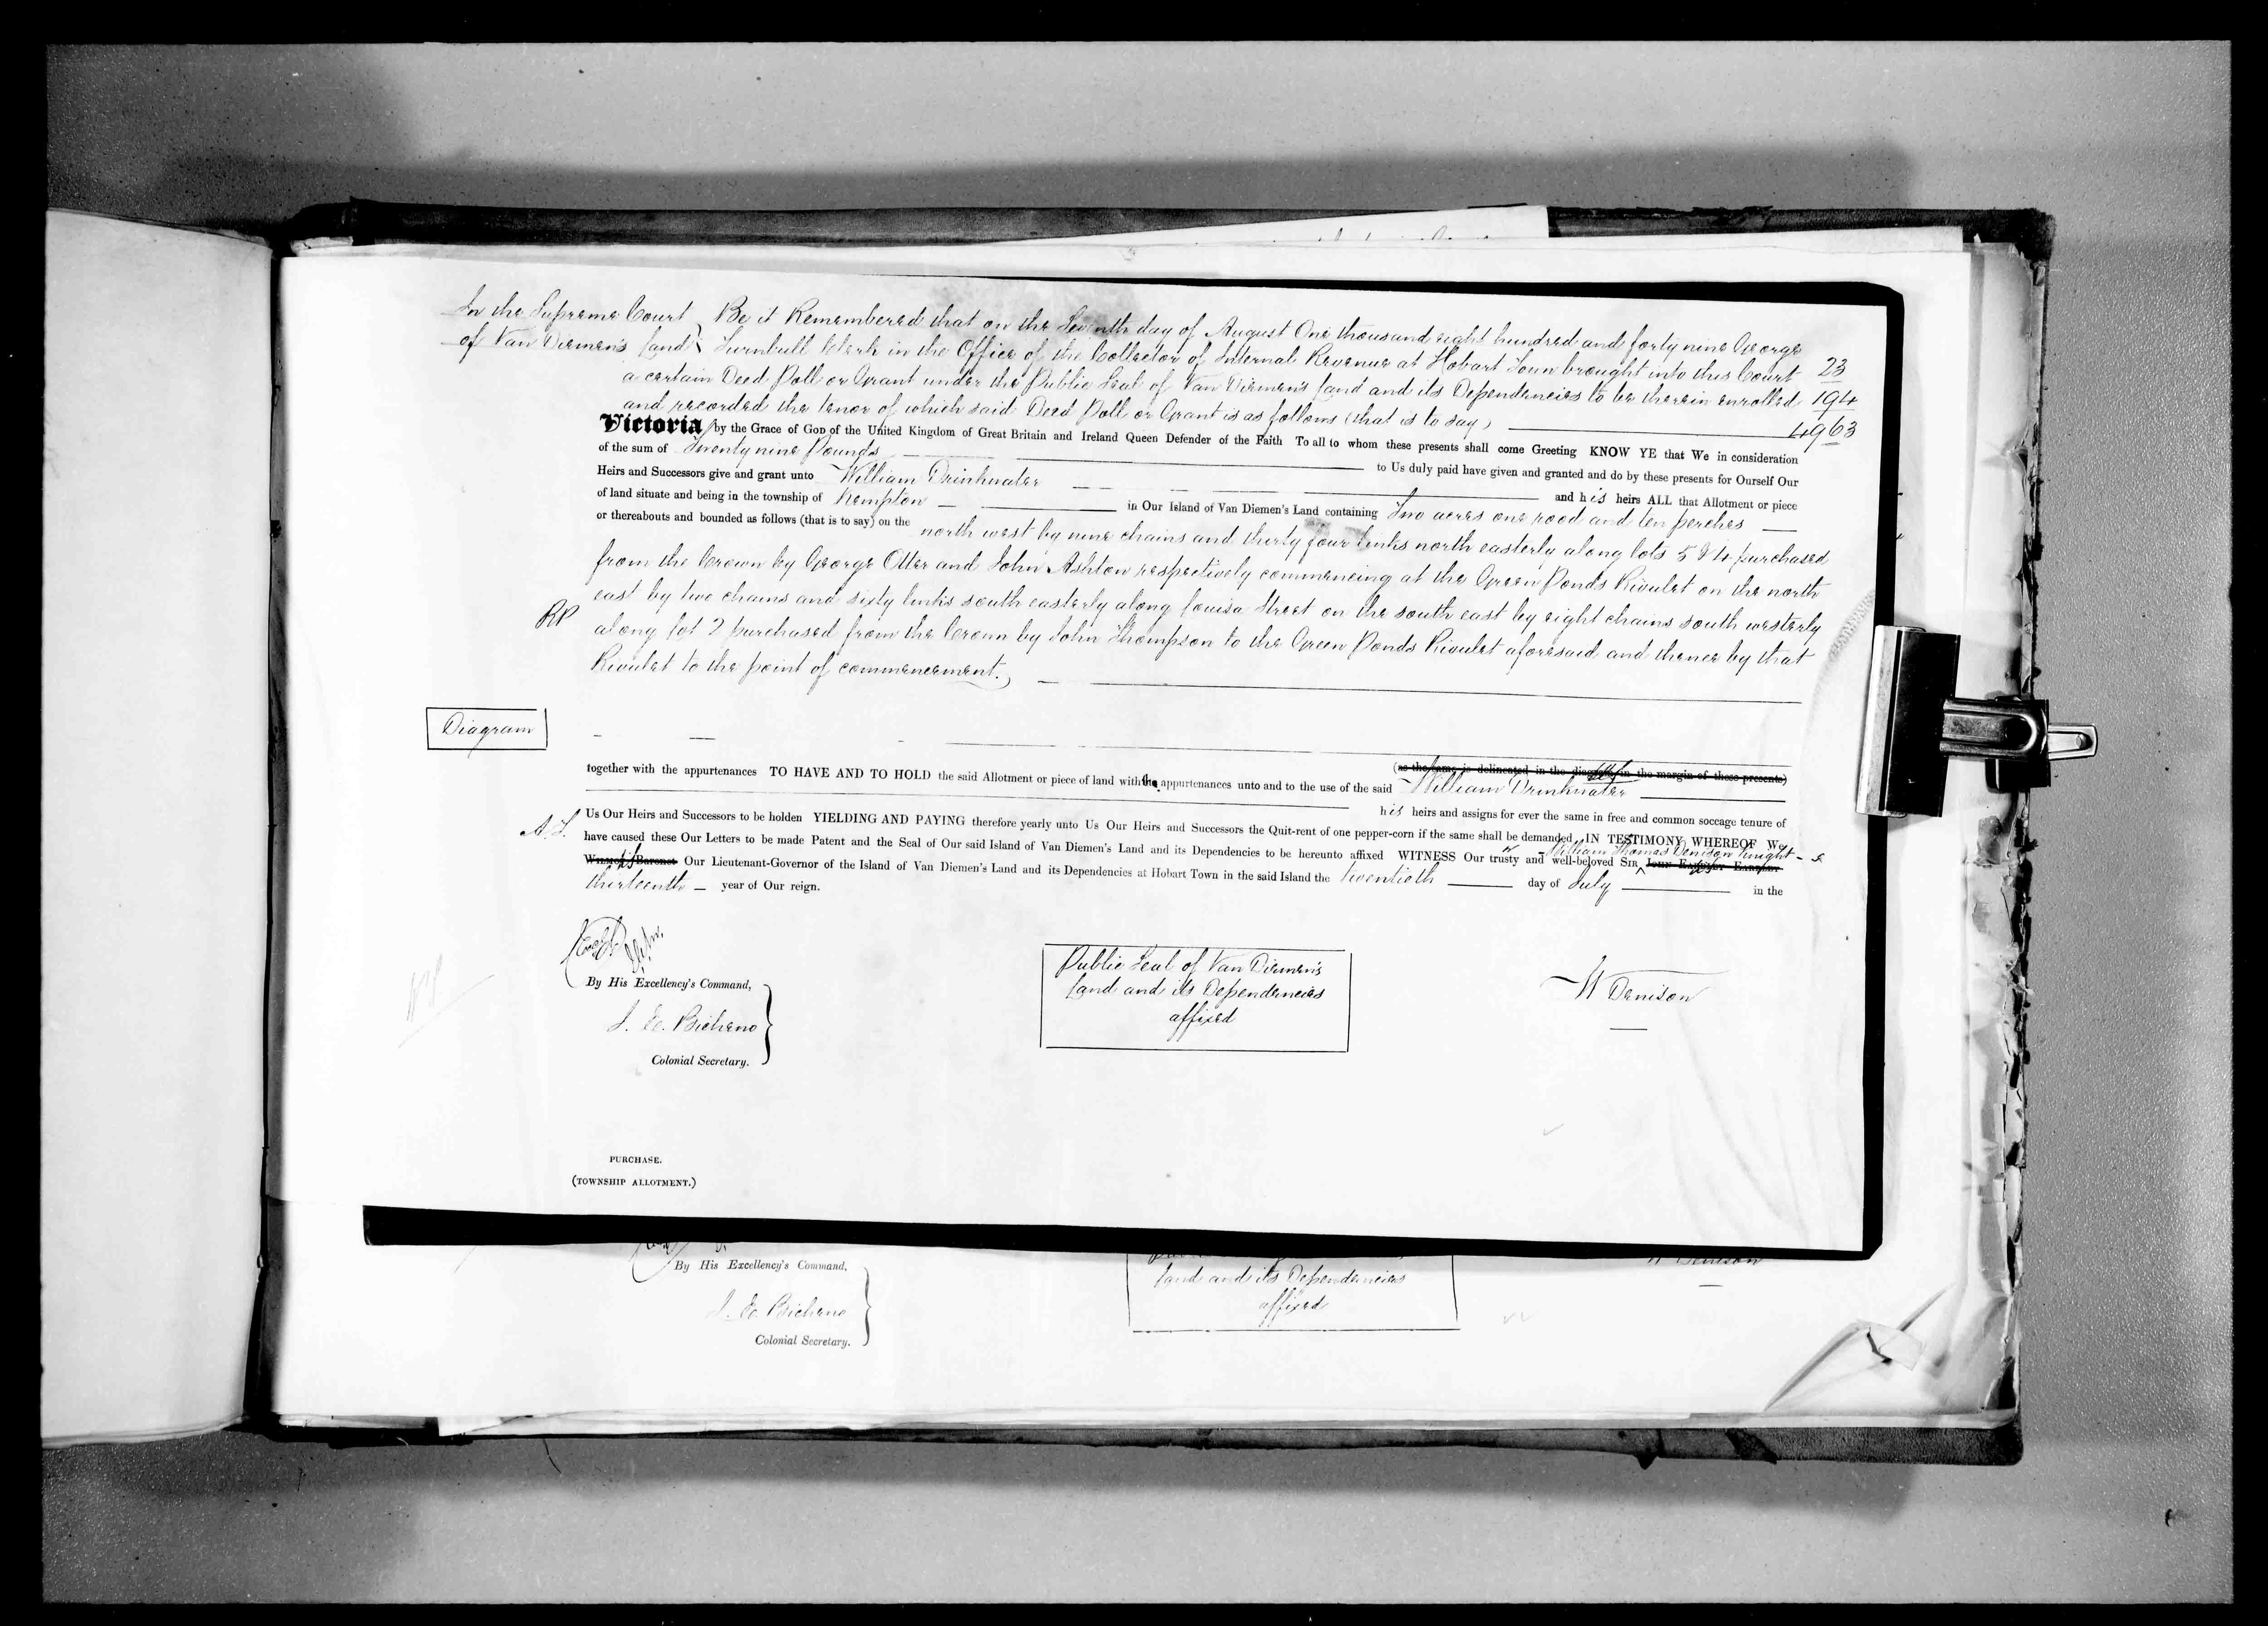 In the Supreme Court } Be it Remembered that on the Seventh day of August One thousand eight hundred and forty nine George
of Van Diemen's Land } Turnbull Clerk in the Office of the Collector of Internal Revenue at Hobart Town brought into this Court 23
a certain Deed Poll or Grant under the Public Seal of Van Diemen's Land and its Dependencies to be therein enrolled 194
and recorded the tenor of which said Deed Poll or Grant is as follows (that is to say) 4963
Victoria by the Grace of God of the United Kingdom of Great Britain and Ireland Queen Defender of the Faith To all to whom these presents shall come Greeting KNOW YE that We in consideration
of the sum of Twenty nine Pounds to Us duly paid have given and granted and do by these presents for Ourself Our
Heirs and Successors give and grant unto William Drinkwater and his heirs ALL that Allotment or piece
of land situate and being in the township of Kempton in Our Island of Van Diemen's Land containing Two acres one rood and ten perches
or thereabouts and bounded as follows (that is to say) on the north west by nine chains and thirty four links north easterly along lots 5 & 4 purchased
from the Crown by George Otter and John Ashton respectively commencing at the Green Ponds Rivulet on the north
east by two chains and sixty links south easterly along Louisa Street on the south east by eight chains south westerly
RP along Lot 2 purchased from the Crown by John Thompson to the Green Ponds Rivulet aforesaid and thence by that
Rivulet to the point of commencement.
Diagram
(as the same is delineated in the diagram in the margin of these presents)
together with the appurtenances TO HAVE AND TO HOLD the said Allotment or piece of land with the appurtenances unto and to the use of the said William Drinkwater
his heirs and assigns for ever the same in free and common soccage tenure of
Us Our Heirs and Successors to be holden YIELDING AND PAYING therefore yearly unto Us Our Heirs and Successors the Quit-rent of one pepper-corn if the same shall be demanded IN TESTIMONY WHEREOF We
have caused these Our Letters to be made Patent and the Seal of Our said Island of Van Diemen's Land and its Dependencies to be hereunto affixed WITNESS Our trusty and well-beloved SIR William Thomas Denison Knight
Wilmot Baronet Our Lieutenant-Governor of the Island of Van Diemen's Land and its Dependencies at Hobart Town in the said Island the twentieth day of July in the
thirteenth year of Our reign.
By His Excellency's Command,
J. E. Bicheno
Colonial Secretary.
Public Seal of Van Diemen's
Land and its Dependencies
affixed
W Denison
PURCHASE.
(TOWNSHIP ALLOTMENT.)
By His Excellency's Command,
J. E. Bicheno
Colonial Secretary.
Land and its Dependencies
affixed
W Denison